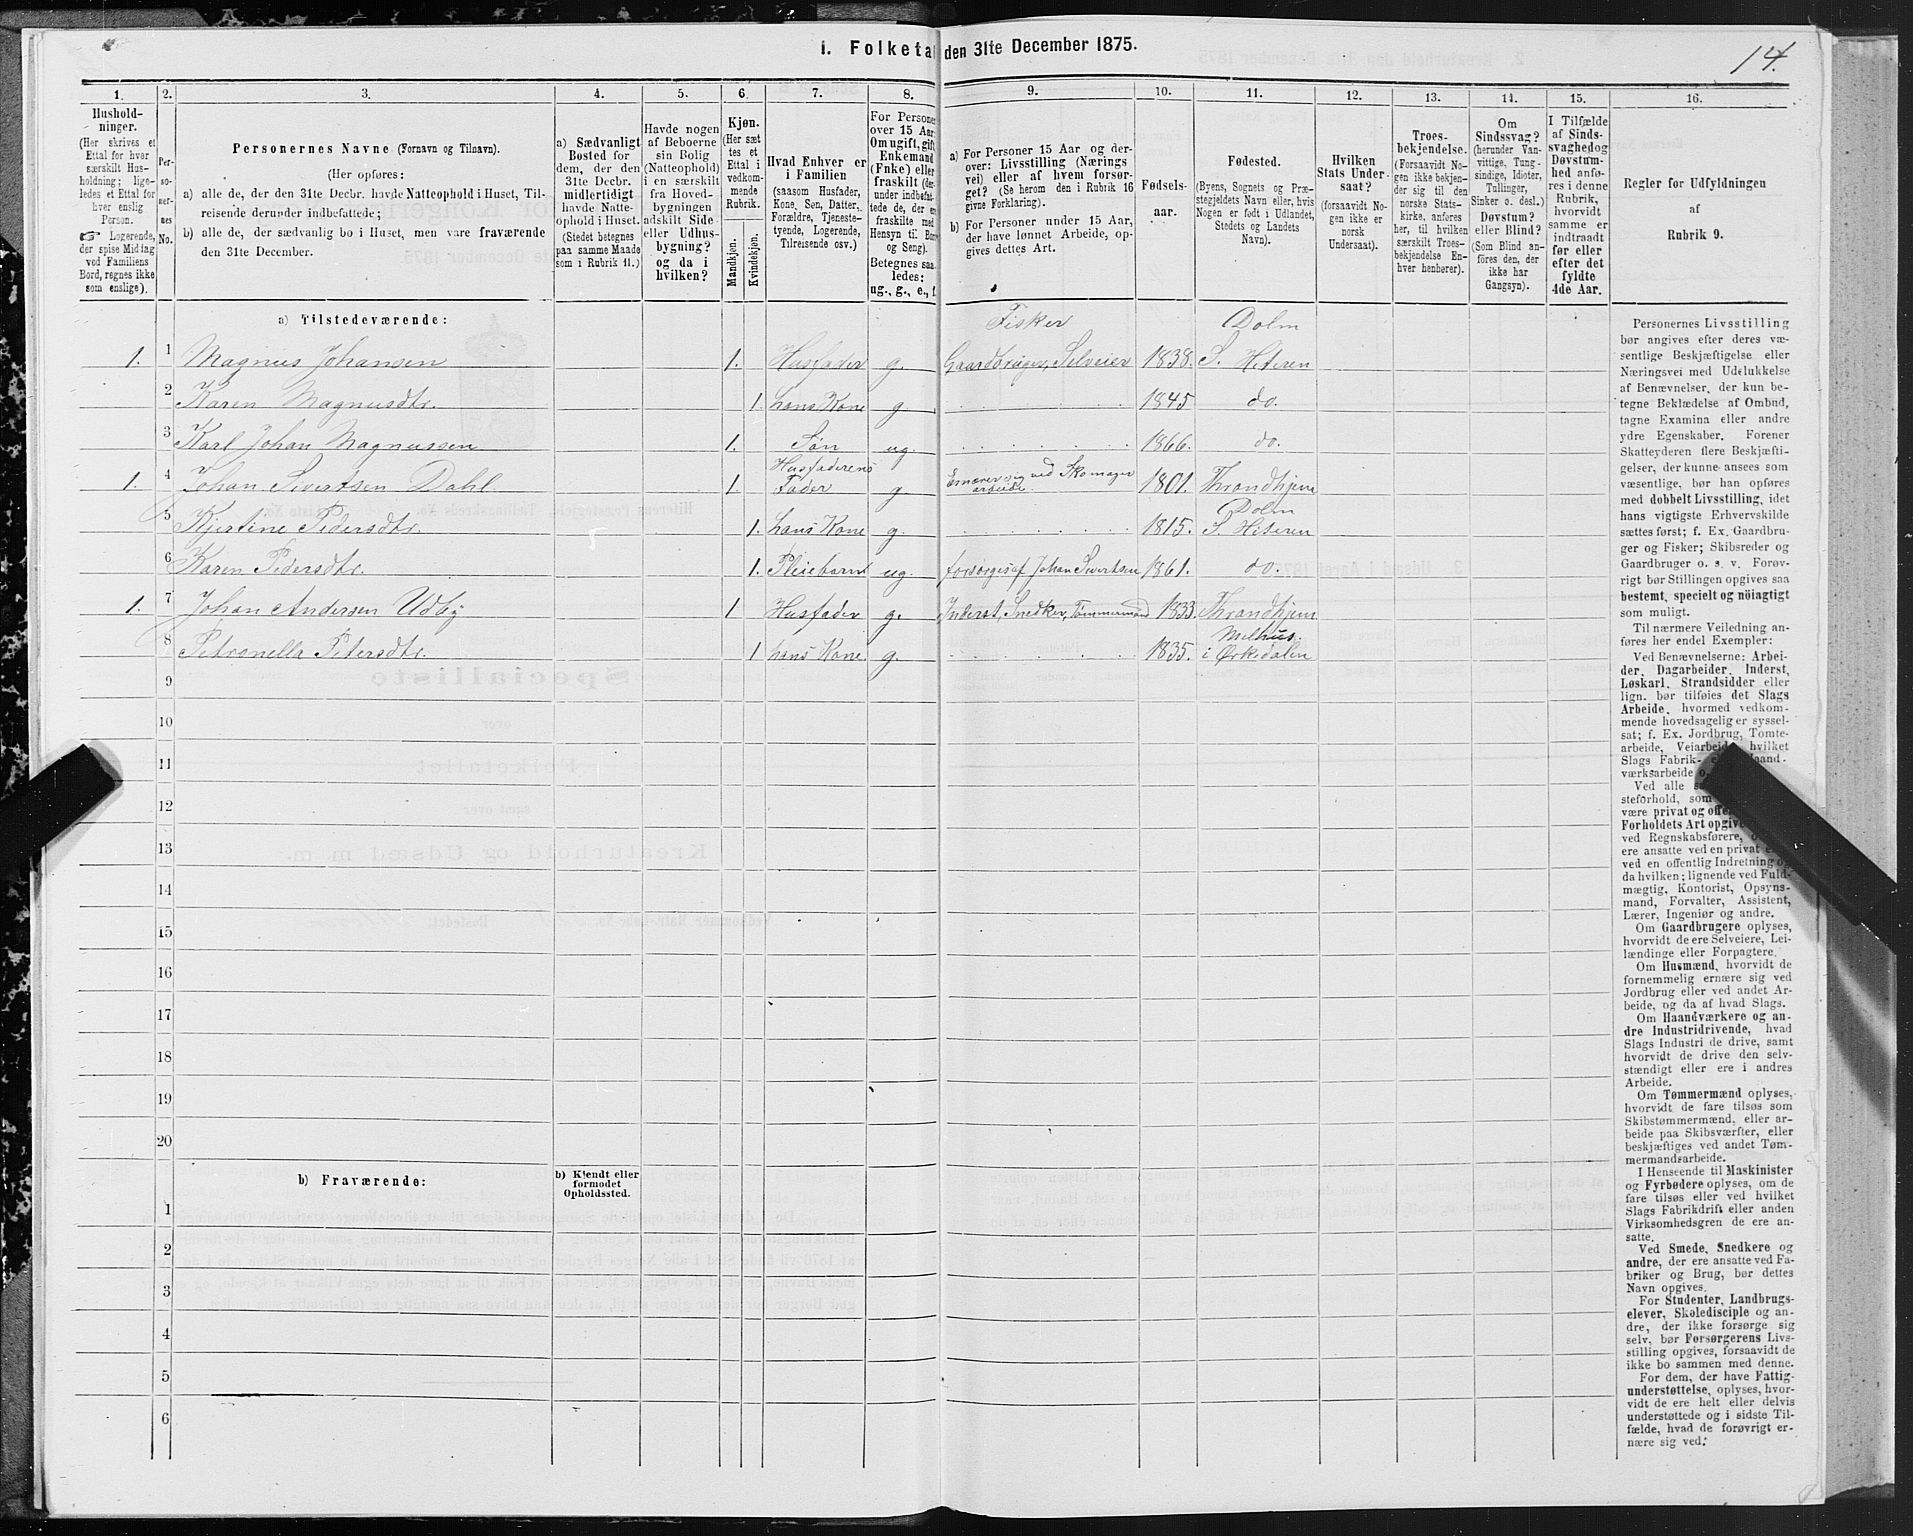 1. Folketal den 31te December 1875.
14.
1.
Hushold-
ninger.
(Her skrives et
Ettal for hver
særskilt Hus-
holdning; lige-
ledes et Ettal for
hver enslig
Person.
Logerende,
der spise Middag
ved Familiens
Bord, regnes ikke
som enslige).
2.
Per-
so-
ner-
nes
No.
3.
Personernes Navne (Fornavn og Tilnavn).
(Her opføres:
a) alle de, der den 31te Decbr. havde Natteophold i Huset, Til-
reisende derunder indbefattede;
b) alle de, der sædvanlig bo i Huset, men vare fraværende
den 31te December.
4.
a) Sædvanligt
Bosted for
dem, der den
31te Decbr.
midlertidigt
havde Natte-
ophold i Huset.
(Stedet betegnes
paa samme Maade
som i Rubrik 11.)
5.
Havde nogen
af Beboerne
sin Bolig
(Natteophold)
i en særskilt
fra Hoved-
bygningen
adskilt Side-
eller Udhus-
bygning?
og da i
hvilken?
6.
Kjøn.
(Her sæt-
tes et
Ettal i
vedkom-
mende
Rubrik.
Mandkjøn.
Kvindekjøn.
7.
Hvad Enhver er
i Familien
(saasom Husfader,
Kone, Søn, Datter,
Forældre, Tjeneste-
tyende, Logerende,
Tilreisende osv.)
8.
For Personer
over 15 Aar:
Om ugift, gift,
Enkemand
(Enke) eller
fraskilt (der-
under indbefat-
tede de, der ere
fraskilte med
Hensyn til Bord
og Seng).
Betegnes saa-
ledes:
ug., g., e., f.
9.
a) For Personer 15 Aar og der-
over: Livsstilling (Nærings
vei) eller af hvem forsør-
get? (Se herom den i Rubrik 16
givne Forklaring).
b) For Personer under 15 Aar,
der have lønnet Arbeide, op-
gives dettes Art.
10.
Fødsels-
aar.
11.
Fødested.
(Byens, Sognets og Præ-
stegjeldets Navn eller, hvis
Nogen er født i Udlandet,
Stedets og Landets
Navn).
12.
Hvilken
Stats Under-
saat?
(forsaavidt No-
gen ikke er
norsk
Undersaat).
13.
Troes-
bekjendelse.
(Forsaavidt No-
gen ikke bekjen-
der sig til den
norske Stats-
kirke, anføres
her, til hvilken
særskilt Troes-
bekjendelse En-
hver henhører).
14.
Om
Sindssvag?
(herunder Van-
vittige, Tung-
sindige, Idioter,
Tullinger,
Sinker o. desl.)
Døvstum?
eller Blind?
(Som Blind an-
føres den, der
ikke har
Gangsyn).
15.
I Tilfælde
af Sinds-
svaghed og
Døvstum-
hed anfø-
res i denne
Rubrik,
hvorvidt
samme er
indtraadt
før eller
efter det
fyldte
4de Aar.
16.
Regler for Udfyldningen
af
Rubrik 9.
a) Tilstedeværende:
Fisker Dolm
1. 1 Magnus Johansen 1. Husfader g. Gaardbruger, Selveier 1838. S. Hiteren
2 Karen Magnusdtr. 1. hans Kone g. 1845 do.
3 Karl Johan Magnussen 1. Søn ug. 1866. do.
Husfaderens
1. 4 Johan Sivertsen Dahl 1. Fader g. Ernærer sig ved Skomager arbeide. 1801. Throndhjem
Dolm
5 Kjertine Pedersdtr. 1. hans Kone g. 1815. S. Hiteren
6 Karen Pedersdtr. 1. Pleiebarn ug. forsørges af Johan Sivertsen 1861. do.
1. 7 Johan Andersen Udby 1 Husfader g. Inderst, Snedker, Tømmermand 1833. Throndhjem
Melhus.
8 Petronella Petersdtr. 1 hans Kone g. 1835. i Ørkedalen
9
10
11
12
13
14
15
16
17
18
19
20
b) Fraværende:
b) Kjendt eller
formodet
Opholdssted.
1
2
3
4
5
6
Personernes Livsstilling
bør angives efter deres væ-
sentlige Beskjæftigelse eller
Næringsvei med Udelukkelse
af Benævnelser, der kun be-
tegne Beklædelse af Ombud,
tagne Examina eller andre
ydre Egenskaber. Forener
Skatteyderen flere Beskjæfti-
gelser, der kunne ansees som
væsentlige, bør han opføres
med dobbelt Livsstilling, idet
hans vigtigste Erhvervskilde
sættes først; f. Ex. Gaardbru-
ger og Fisker; Skibsreder og
Gaardbruger o. s. v. Forøv-
rigt bør Stillingen opgives saa
bestemt, specielt og nöiagtigt
som muligt.
Til nærmere Veiledning an-
føres her endel Exempler:
Ved Benævnelserne: Arbei-
der, Dagarbeider, Inderst,
Løskarl, Strandsidder eller
lign. bør tilføies det Slags
Arbeide, hvormed vedkom-
mende hovedsagelig er syssel-
sat; f. Ex. Jordbrug, Tomte-
arbeide, Veiarbeide, hvilket
Slags Fabrik- Haand-
værksarbeide
Ved alle
steforhold, som
være privat og
Forholdets Art opgives
ved Regnskabsførere,
ere ansatte ved en privat
ved en offentlig Indretning og
da hvilken; lignende ved Fuld-
mægtig, Kontorist, Opsyns-
mand, Forvalter, Assistent,
Lærer, Ingeniør og andre.
Om Gaardbrugere oplyses,
hvorvidt de ere Selveiere, Lei-
lændinge eller Forpagtere.
Om Husmænd, hvorvidt de
fornemmelig ernære sig ved
Jordbrug eller ved andet Ar-
beide, og da af hvad Slags.
Om Haandværkere og an-
dre Industridrivende, hvad
Slags Industri de drive, samt
hvorvidt de drive den selv-
stændigt eller ere i andres
Arbeide.
Om Tømmermænd oplyses,
hvorvidt de fare tilsøs som
Skibstømmermænd, eller ar-
beide paa Skibsværfter, eller
beskjæftiges ved andet Tøm-
mermandsarbeide.
I Henseende til Maskinister
og Fyrbødere oplyses, om de
fare tilsøs eller ved hvilket
Slags Fabrikdrift eller anden
Virksomhedsgren de ere an-
satte.
Ved Smede, Snedkere og
andre, der ere ansatte ved Fa-
briker og Brug, bør dettes
Navn opgives.
For Studenter, Landbrugs-
elever, Skoledisciple og an-
dre, der ikke forsørge sig
selv, bør Forsørgerens Livs-
stilling opgives, forsaavidt de
ikke bo sammen med denne.
For dem, der have Fattig-
understøttelse, oplyses, hvor-
vidt de ere helt eller delvis
understøttede og i sidste Til-
fælde, hvad de forøvrigt er-
nære sig ved.